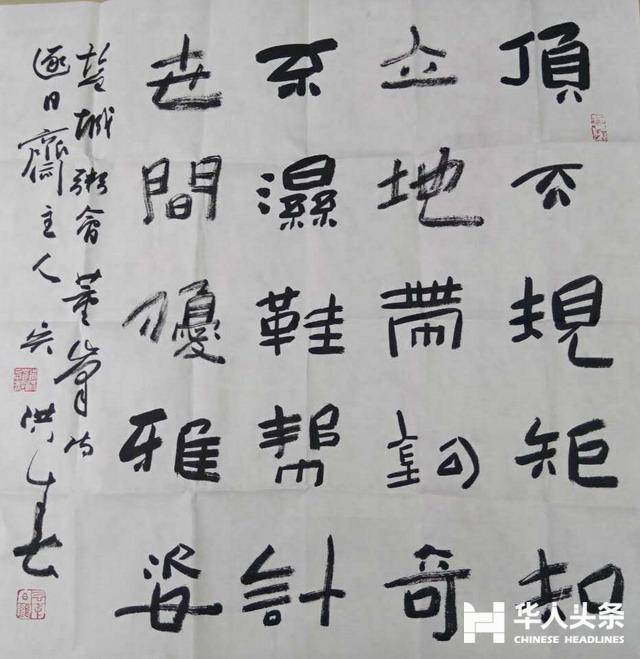 頂天規矩知
立地帶詞奇
不濕鞋幫計
世間優雅姿
鹽城粥會董峰詩
逐日齋主人吳洪春
华人头条
CHINESE HEADLINES